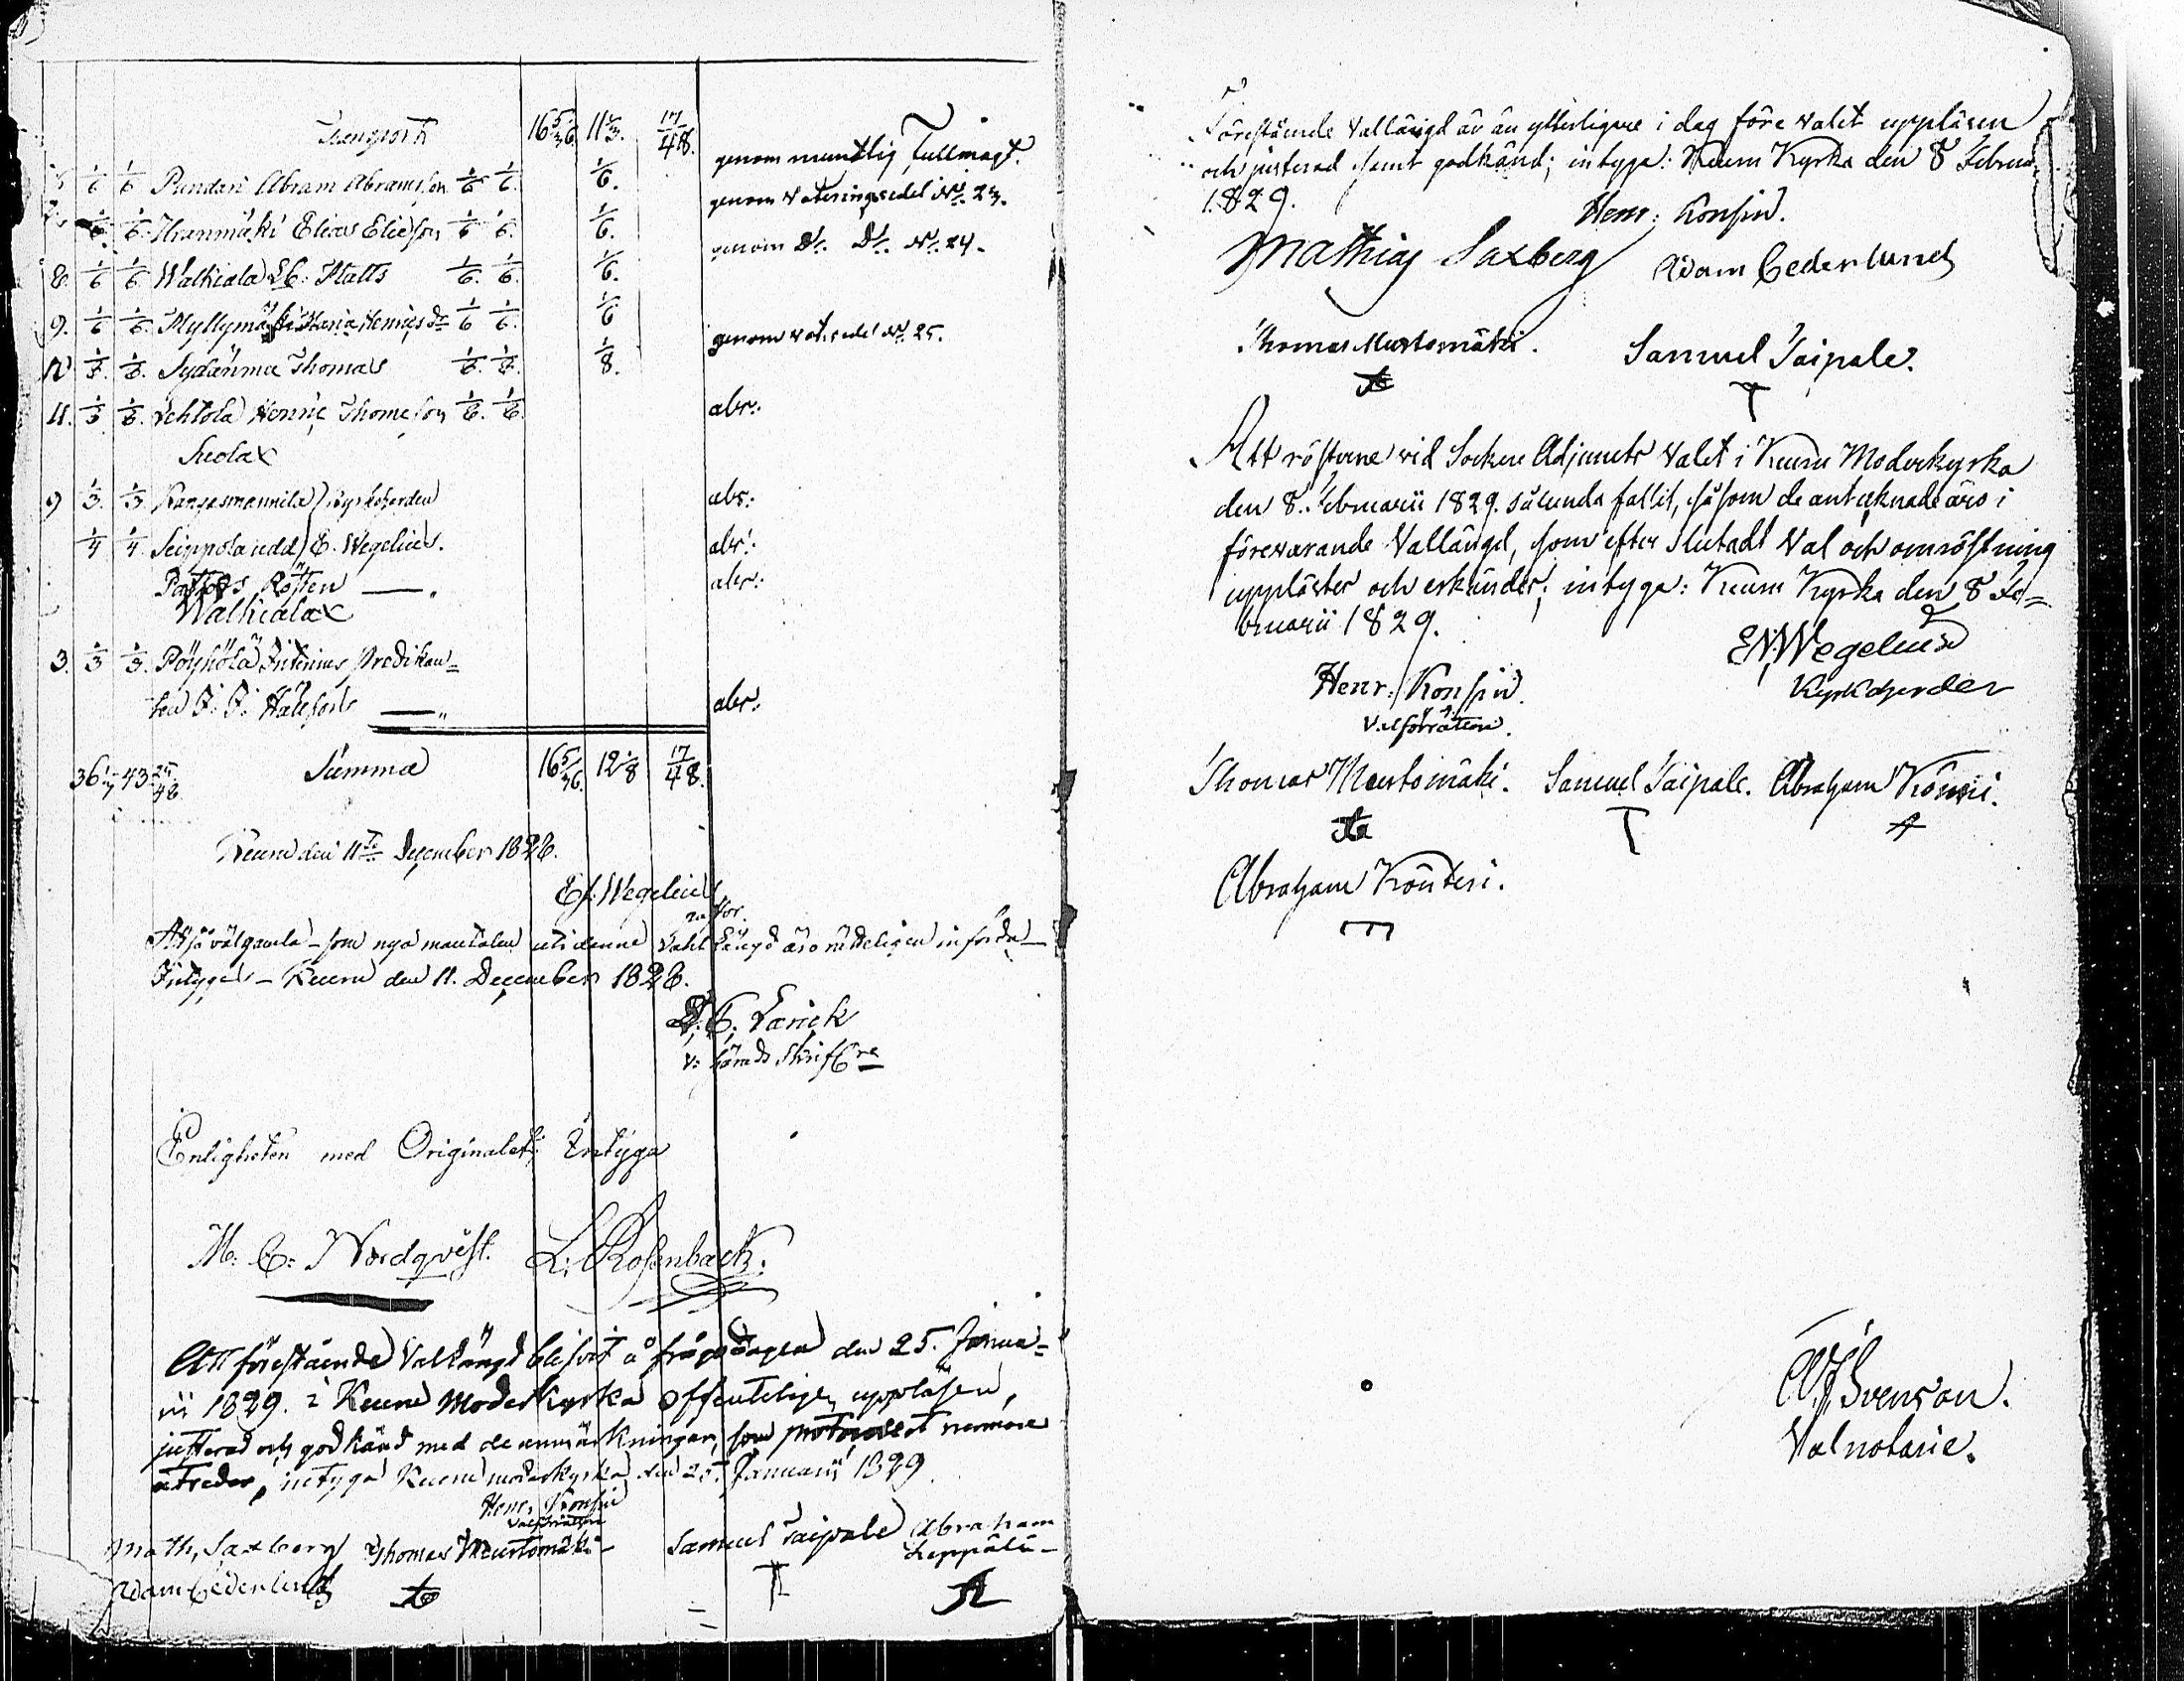 Transport 16 5/36. 11 1/3. 17/48.
genom muntlig Fullmagt.
1/6 1/6 Pundari Abram Abramsson 1/6 1/6. 1/6.
genom Voteringssedel No. 23.
1/6. 1/6. Elias Eliesson 1/6 1/6. 1/6.
genom Do. Do. No. 24.
8. 1/6 1/6 Walkiala Matts 1/6. 1/6. 1/6.
9. 1/6 1/6. Myllymäki Maria Henrics dr 1/6 1/6. 1/6
genom vot. sedel No. 25.
Sydänmaa Thomas 1/8.
11. 1/3 Lehtola Henric Thomesson abs:
9 1/3. 1/3. Kangasmannila Kyrkoherden abs:
1/4 1/4. Seippola E. Wegelius. abs:
Pastors Rösten — „ abs:
Walkialax
3. 1/3 1/3. Pöyhölä Interims Predikan=
ten — „ abs:
Summa 16 5/36. 12 1/8 17/48.
Keuru den 11te December 1828.
Ef: Wegelius
Pastor.
Att så väl gamla — som nya mantalen uti denne Vahl Längd äro rätteligen införda —
Intygas — Keuru den 11. December 1828.
v: härads Skrifvare
Enligheten med Originalet; Intyga
M: C: Nordqvist. L. Rosenback.
Att förestående Vallängd blifvit å frågodagen den 25. Janua=
rii 1829. i Keuru Moderkyrka offenteligen uppläsen,
justerad och godkänd med de anmärkningar, som protocollet närmare
utreder, intyga Keuru moderkyrka den 25. Januarii 1829
Henr. Konsin
Valförrättare
Math, Saxberg Thomas Mustomäki — Samuel Taipale Abraham
Leppälä —
Adam Cederlund
Förestående Vallängd är än ytterligare i dag före valet uppläsen
och justerad samt godkänd; intyga: Keuru Kyrka den 8 Februa.
1829.
Henr: Konsin.
Mathias Saxberg Adam Cederlund
Thomas Mustomäki. Samuel Taipale.
Att rösterne vid Sockne Adjuncts Valet i Keuru Moderkyrka
den 8. Februarii 1829. sålunda fallit, såsom de antecknade äro i
förevarande Vallängd, som efter slutadt Val och omröstning
upplästes och erkändes; intyga: Keuru Kyrka den 8 Fe=
bruarii 1829.
Wegelius
Kyrkoherde
Henr: Konsin.
Valförrättare.
Thomas Mustomäki. Samuel Taipale. Abraham
Abraham
Svenson.
Valnotarie.